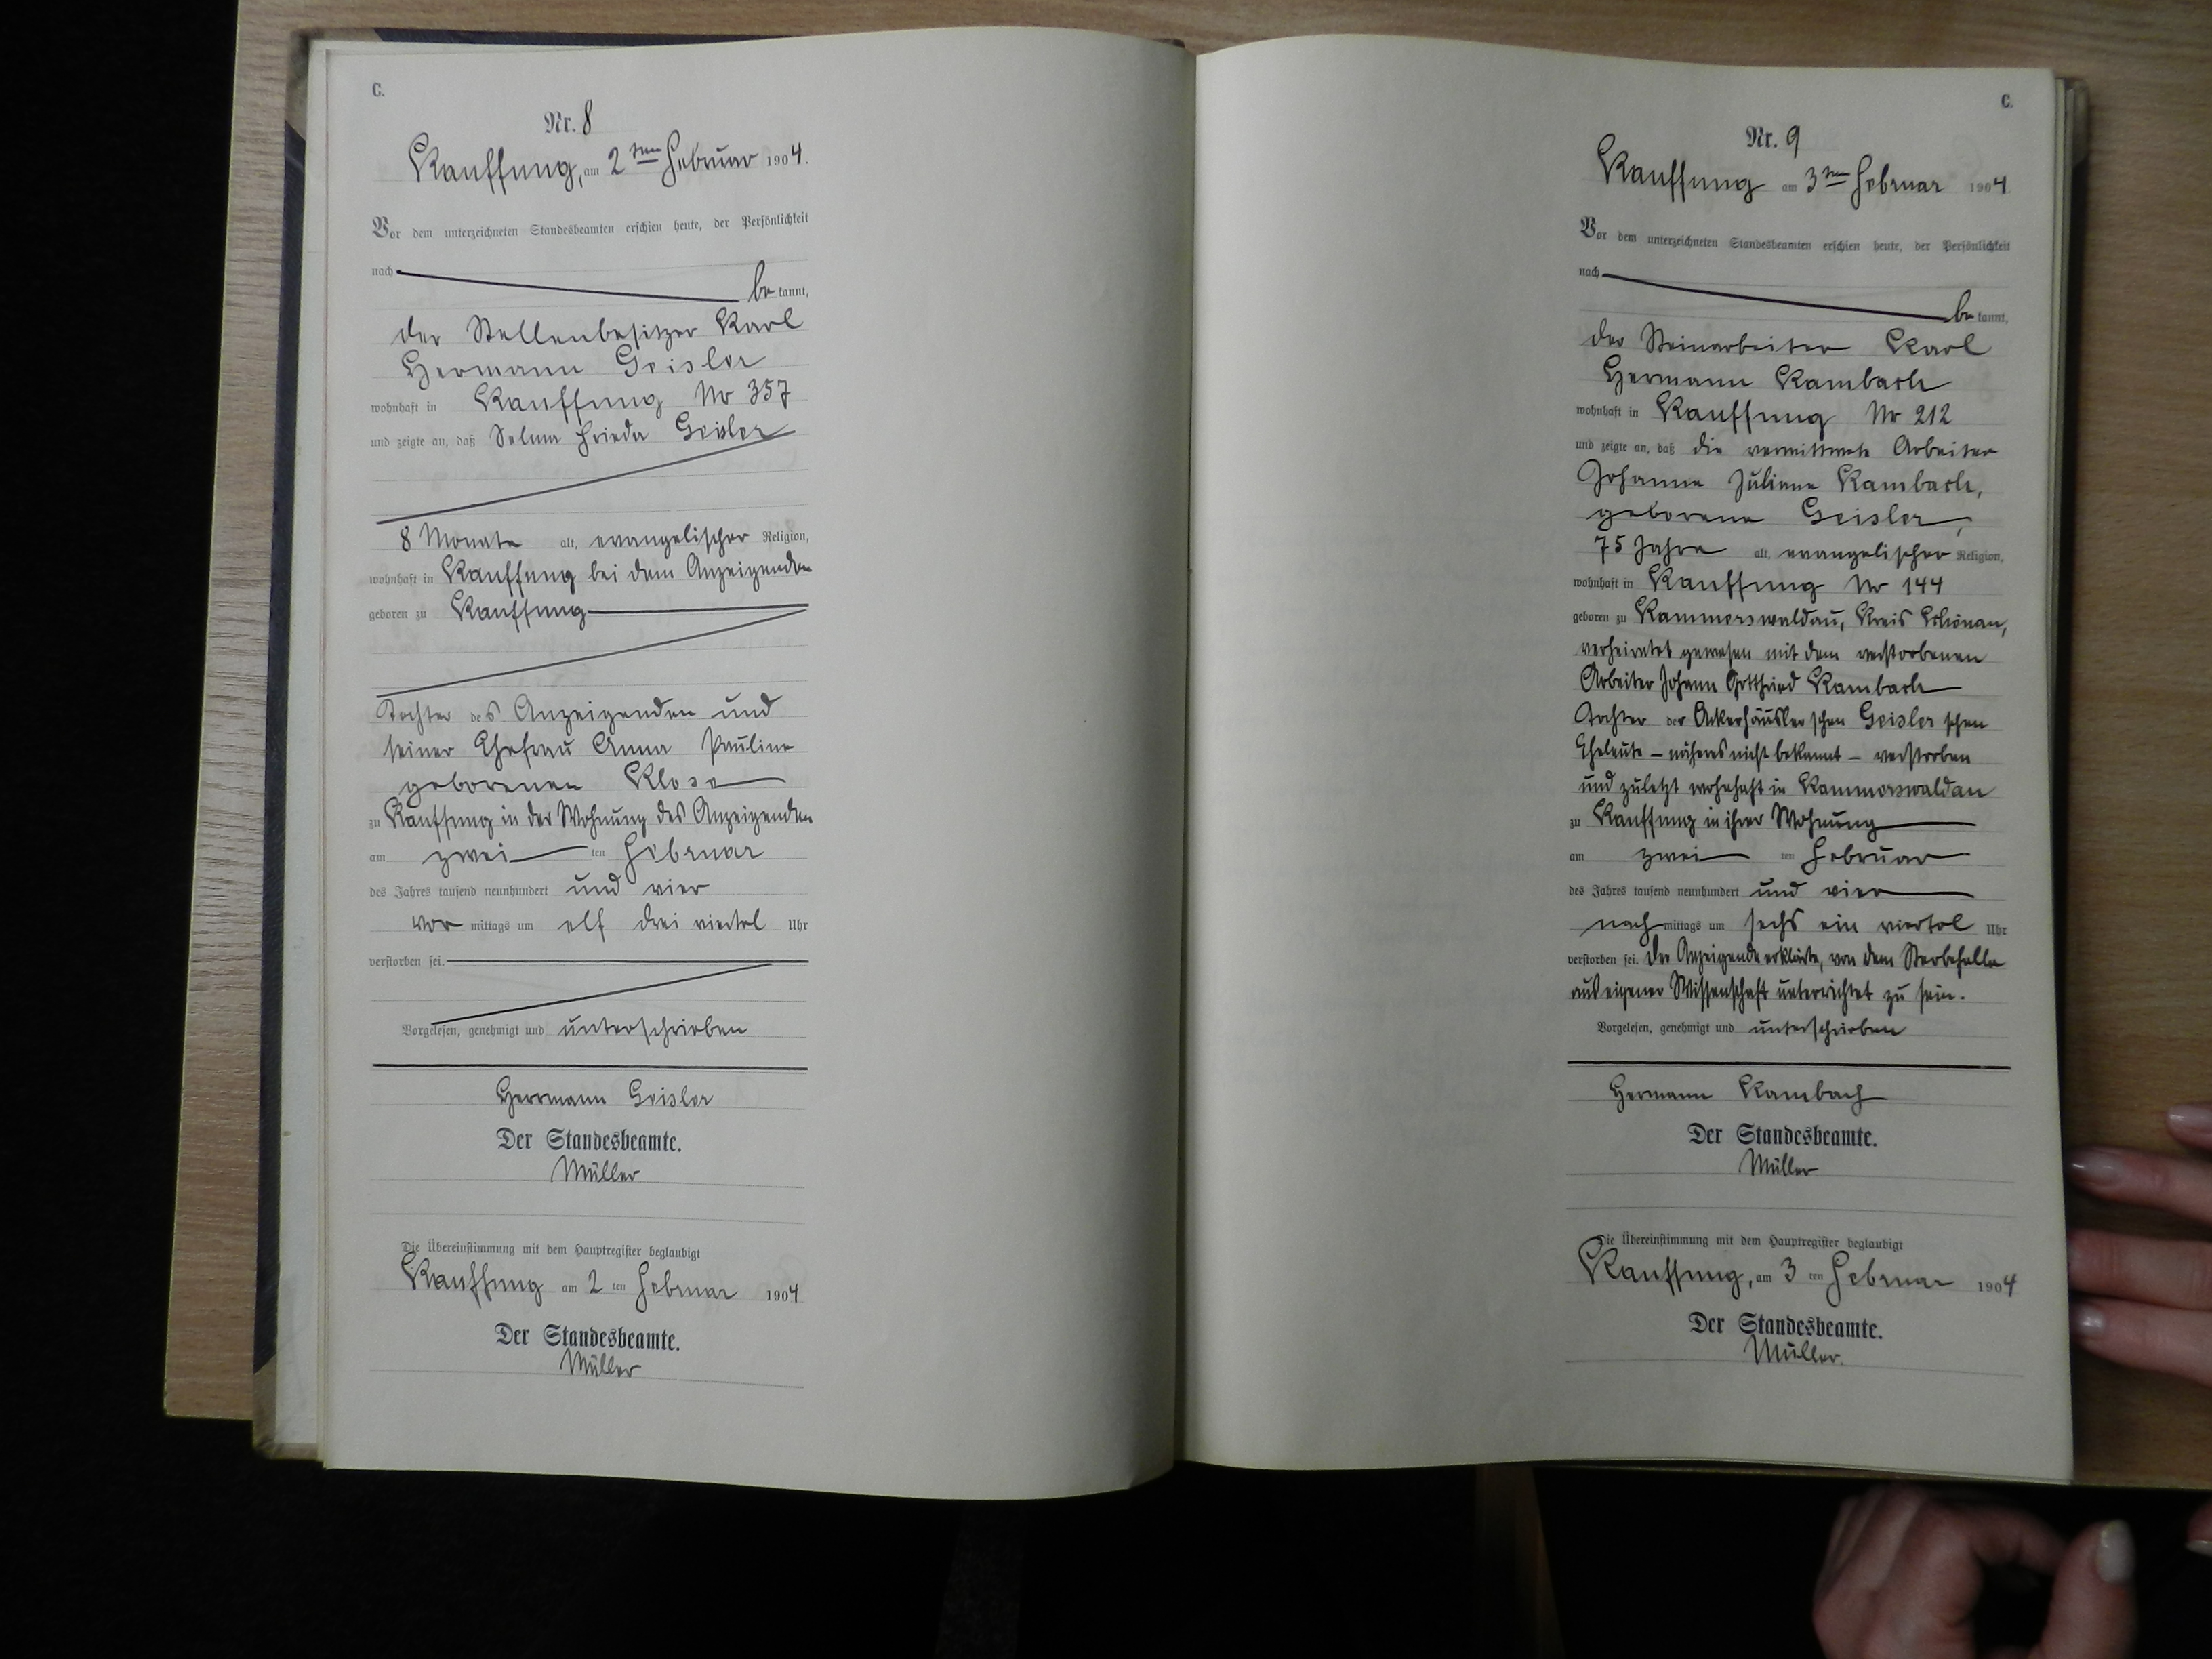 C.
Nr. 8
Kauffung, am 2ten Februar 1904.
Vor dem unterzeichneten Standesbeamten erschien heute, der Persönlichkeit
nach
be kannt,
der Stellenbesitzer Karl
Hermann Geisler
wohnhaft in Kauffung Nr 357
und zeigte an, daß Selma Frieda Geisler
8 Monate alt, evangelischer Religion,
wohnhaft in Kauffung bei dem Anzeigenden
geboren zu Kauffung
Tochter des Anzeigenden und
seiner Ehefrau Anna Pauline
geborenen Klose
zu Kauffung in der Wohnung des Anzeigenden
am zwei ten Februar
des Jahres tausend neunhundert und vier
vor mittags um elf drei viertel Uhr
verstorben sei.
Vorgelesen, genehmigt und unterschrieben
Herrmann Geisler
Der Standesbeamte.
Müller
Die Übereinstimmung mit dem Hauptregister beglaubigt
Kauffung am 2 ten Februar 1904
Der Standesbeamte.
Müller
C.
Nr. 9
Kauffung am 3ten Februar 1904
Vor dem unterzeichneten Standesbeamten erschien heute, der Persönlichkeit
nach
be kannt,
der Steinarbeiter Karl
Hermann Kambach
wohnhaft in Kauffung Nr 212
und zeigte an, daß die verwittwete Arbeiter
Johanne Juliane Kambach,
geborene Geisler,
75 Jahre alt, evangelischer Religion,
wohnhaft in Kauffung Nr 144
geboren zu Kammerswaldau, Kreis Schönau,
verheiratet gewesen mit dem verstorbenen
Arbeiter Johann Gottfried Kambach
Tochter der Ackerhäusler schen Geisler schen
Eheleute – näheres nicht bekannt – verstorben
und zuletzt wohnhaft in Kammerswaldau
zu Kauffung in ihrer Wohnung
am zwei ten Februar
des Jahres tausend neunhundert und vier
nach mittags um sechs ein viertel Uhr
verstorben sei. Der Anzeigende erklärte, von dem Sterbefalle
aus eigener Wissenschaft unterrichtet zu sein.
Vorgelesen, genehmigt und unterschrieben
Hermann Kambach
Der Standesbeamte.
Müller
Die Übereinstimmung mit dem Hauptregister beglaubigt
Kauffung, am 3 ten Februar 1904
Der Standesbeamte.
Müller.